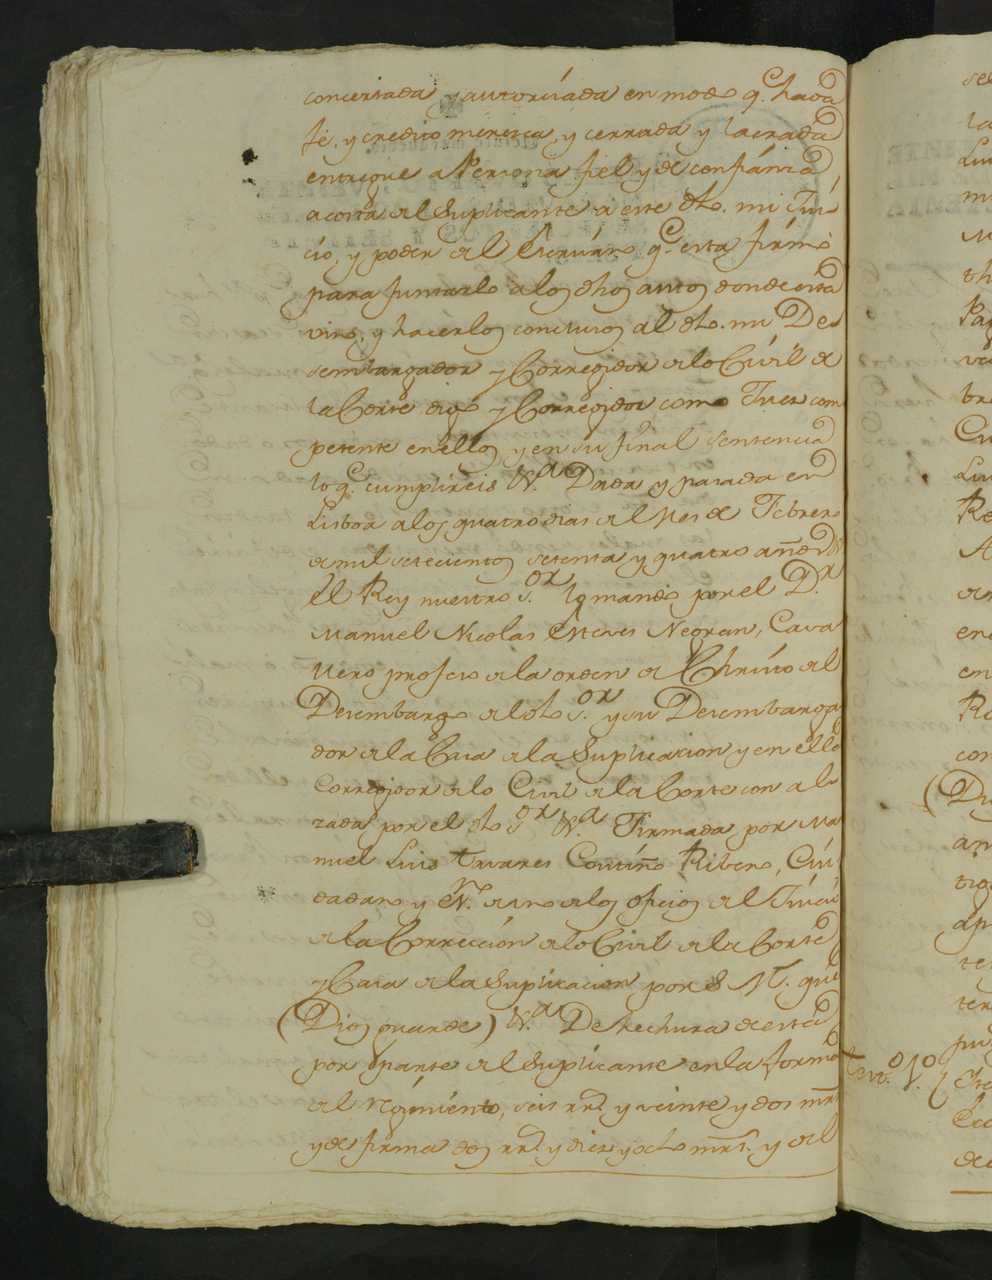 concertada y autoriza​da en modo q.e haga
fe, y credito meresca, y cerrada y lacrada
entregue a Persona fiel y de confianza
a costa del Suplicante a este dho. mi Jui-
cio, y poder del Escrivano q.e esta firmó
para juntarlo a los dhos autos donde esta
vino, y hacerlos conclusos al dho. mi De
sembargador y Corregidor de lo Civil de
la Corte digo y Corregidor como Juez com
petente en ellos y en su final sentencia
lo q.e cumplireis V.a Dada y pasada en
Lisboa a los quatro dias del Mes de Febrero
de mil setecientos setenta y quatro años
El Rey nuestro S.or lo mandó por el D.r
Manuel Nicolas Esteves Negran, Cava
llero profeso de la orden de Christo del
Desembargo del dho S.or y su Desembarga
dor de la Casa de la Suplicacion y en ella
Corregidor de lo Civil de la Corte con al
zada por el dho S.or V.a Firmada por Ma
nuel Luis Tavares Coutiño Ribero, Ciu
dadano y
de la Corrección de lo Civil de la Corte
y Casa de la Suplicacion por S. M. que
(Dios guarde) V.a De hechura de esta
por parte del Suplicante en la forma
del Regimiento, seis rr.s y veinte y dos mrs
y de firma dos rr.s y diez y ocho mrs. y del